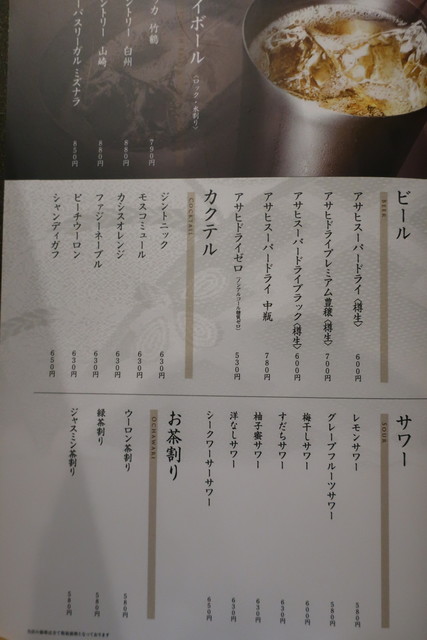 イボール
(ロック・水割り)
カ 竹鶴 790円
トリー 白州 880円
ントリー 山崎 880円
ーバスリーガル ミズナラ 850円
ビール
BEER
アサヒスーパードライ(樽生) 600円
アサヒドライプレミアム豊穣(樽生) 700円
アサヒスーパードライブラック(樽生) 600円
アサヒスーパードライ 中瓶 780円
アサヒドライゼロ (ノンアルコール・糖質ゼロ) 530円
カクテル
COCKTAIL
ジントニック 630円
モスコミュール 630円
カシスオレンジ 630円
ファジーネーブル 630円
ピーチウーロン 630円
シャンディガフ 650円
サワー
SOUR
レモンサワー 580円
グレープフルーツサワー 580円
梅干しサワー 600円
すだちサワー 630円
柚子蜜サワー 630円
洋なしサワー 630円
シークワーサーサワー 650円
お茶割り
OCHAWARI
ウーロン茶割り 580円
緑茶割り 580円
ジャスミン茶割り 580円